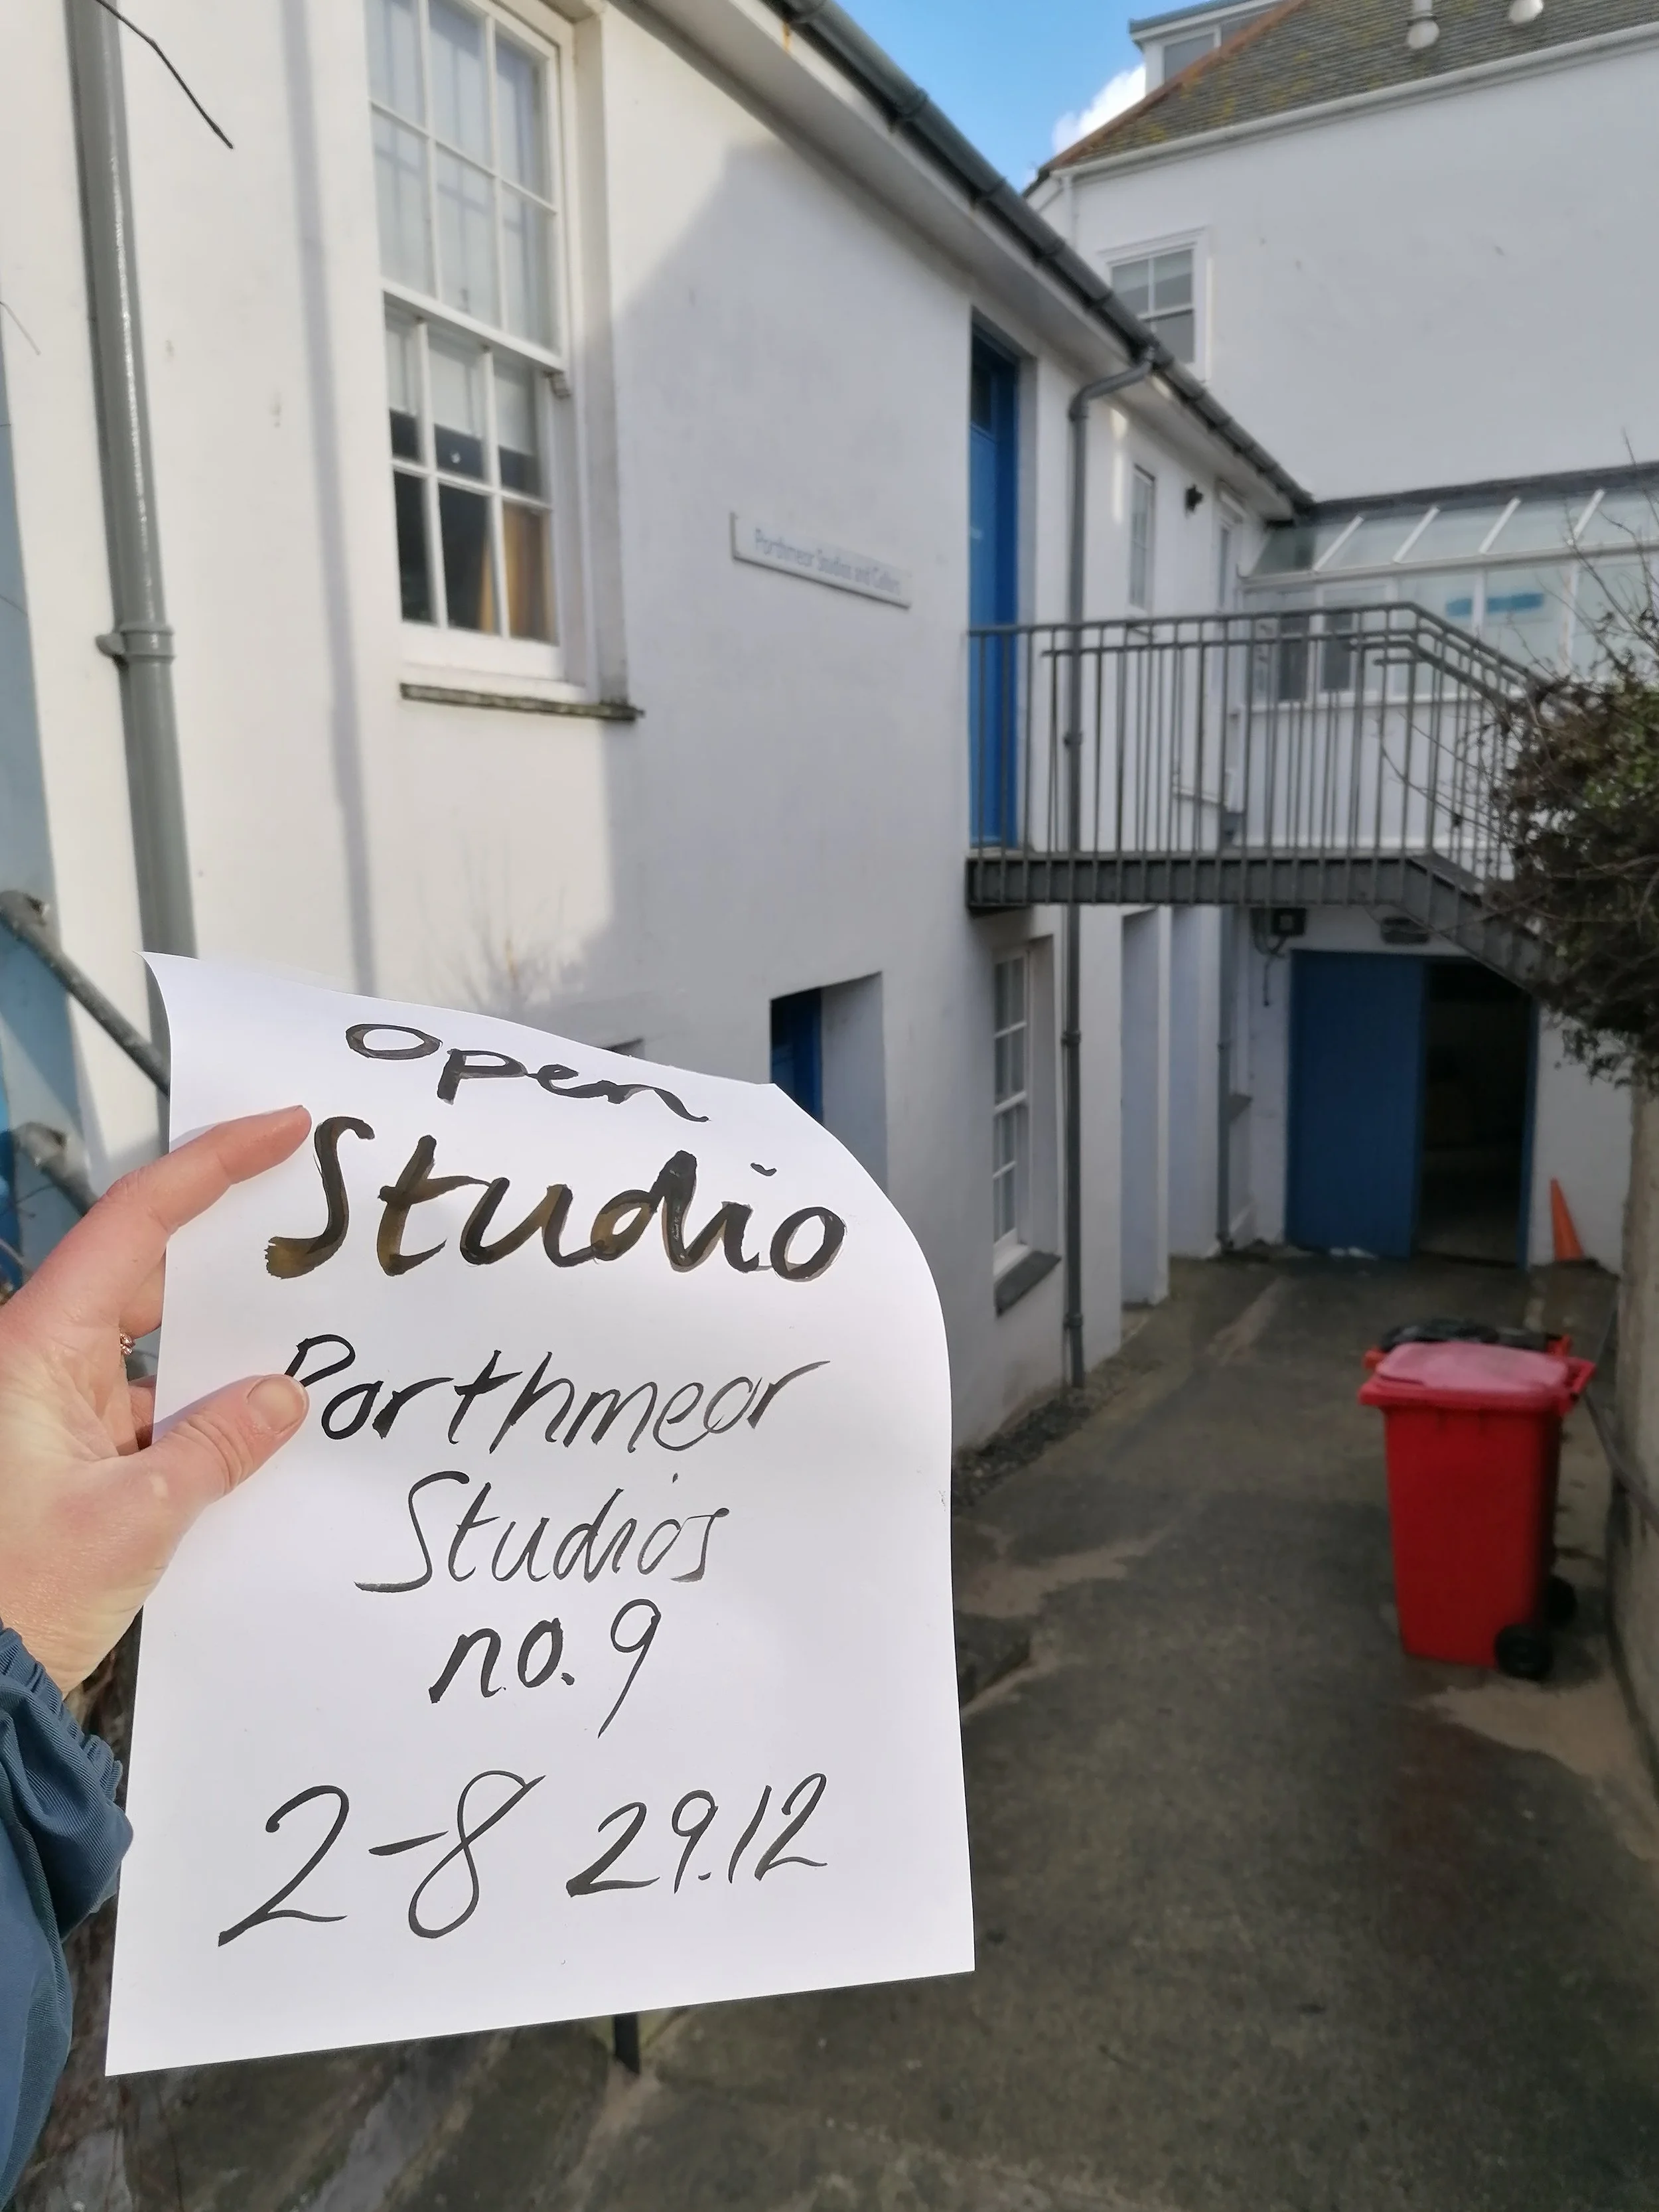 Porthmeor Studios and Cellars
Open
Studio
Porthmeor
Studios
no. 9
2-8 29.12